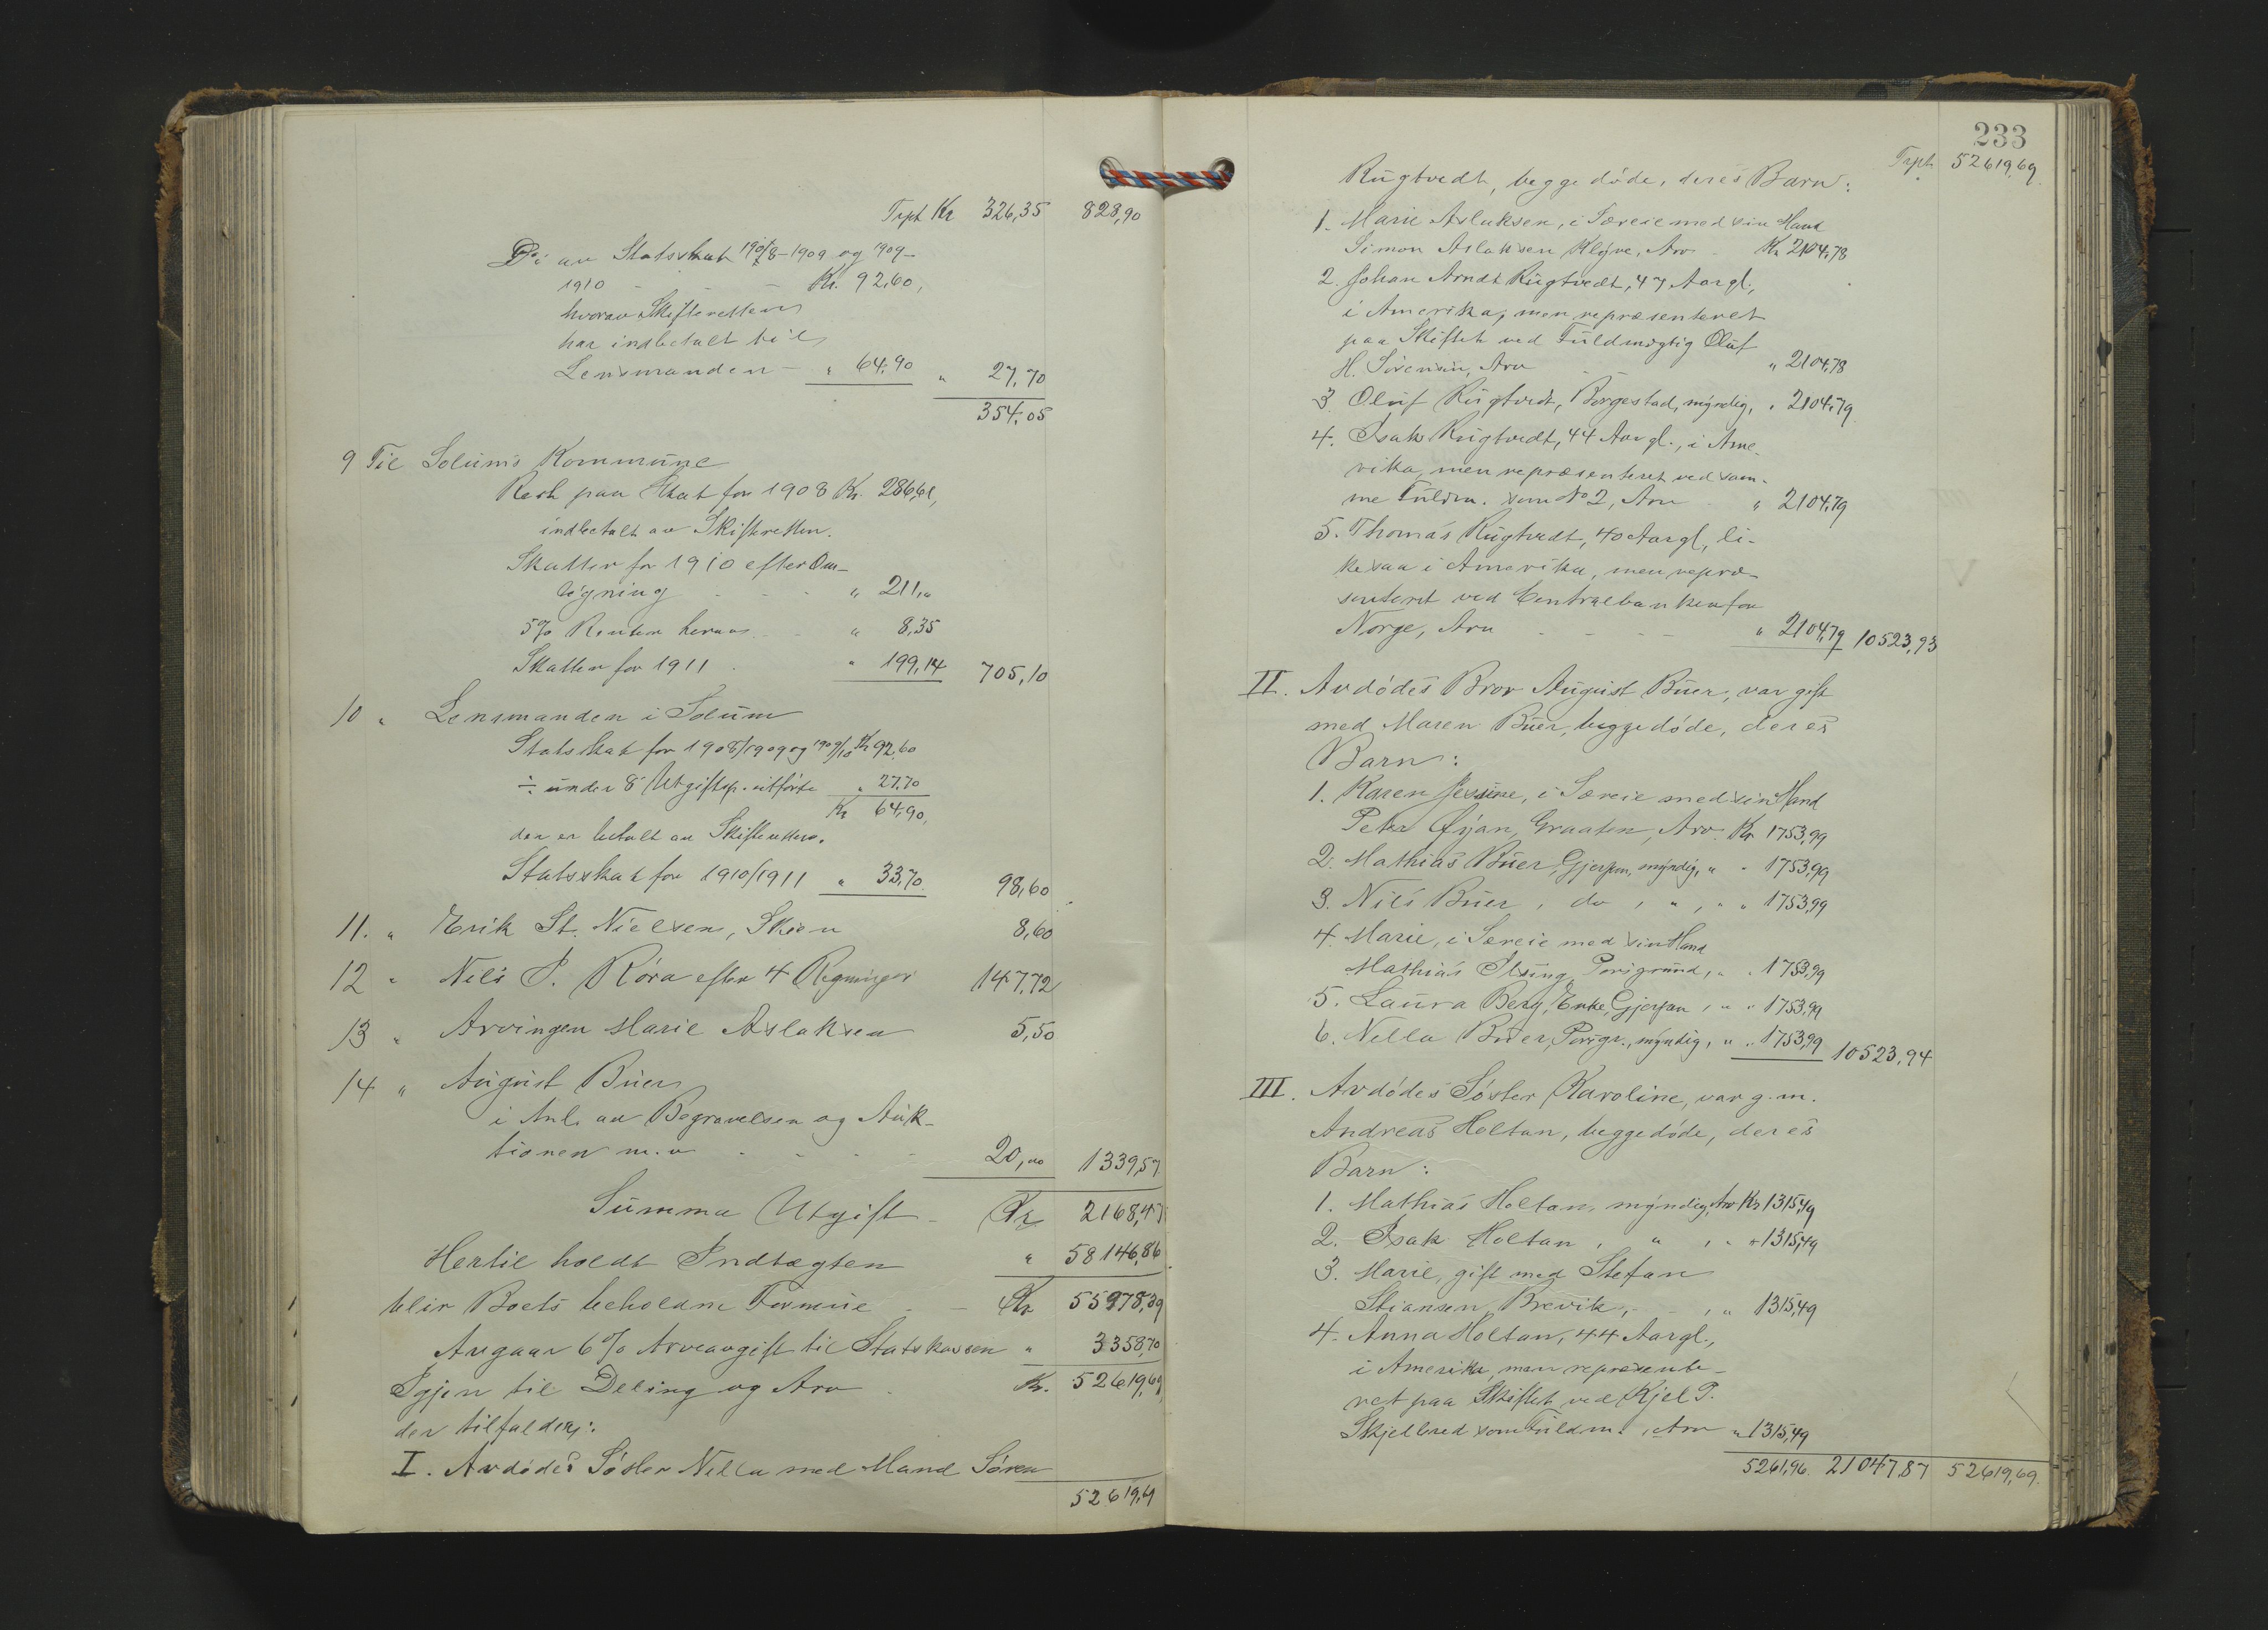 Trpt Kr 326,35 828,90
Do. av Statsskat 1908-1909 og 1909-
1910 - - Kr. 92,60,
hvorav Skifteretten
har indbetalt til
Lensmanden - " 64,90 " 27,70
354,05
9 Til Solums Kommune
Rest paa Skat for 1908 Kr. 286,61,
indbetalt av Skifteretten.
Skatter for 1910 efter Om-
ligning - - - " 211,"
5% Renter herav - - " 8,35
Skatter for 1911 - " 199,14 705,10
10 " Lensmanden i Solum
Statsskat for 1908/1909 og 1909/10 Kr 92,60
÷ under 8 Utgiftsp. utførte " 27,70
Kr 64,90,
der er betalt av Skifteretten.
Statsskat for 1910/1911 " 33,70 98,60
11. " Erik St. Nielsen, Skien 8,60
12 " Nils P. Röra efter 4 Regninger 147,72
13 " Arvingen Marie Aslaksen 5,50
14 " August Buer
i Anl. av Begravelsen og Auk-
tionen m.v. - - - 20,00 1339,57
Summa Utgift - Kr 2168,47
Hertil holdt Indtægten " 58146,86
blir Boets beholdne Formue - - Kr 55978,39
Avgaar 6% Arveavgift til Statskassen " 3358,70
Igjen til Deling og Arv - Kr. 52619,69
der tilfalder:
I. Avdødes Søster Nella med Mand Søren
52619,69
233
Trpt 52619,69.
Rugtvedt, begge døde, deres Barn:
1. Marie Aslaksen, i Særeie med sin Mand
Simon Aslaksen Klyve, Arv - Kr 2104,78
2. Johan Arndt Rugtvedt, 47 Aargl.,
i Amerika, men repræsenteret
paa Skiftet ved Fuldmægtig Oluf
H. Sørensen, Arv - - " 2104,78
3. Oluf Rugtvedt, Borgestad, myndig, " 2104,79
4. Isak Rugtvedt, 44 Aargl., i Ame-
rika, men repræsenteret ved sam-
me Fuldm. som No 2, Arv - " 2104,79
5. Thomas Rugtvedt, 40 Aargl, li-
kesaa i Amerika, men repræ-
senteret ved Centralbanken for
Norge, Arv - - - - " 2104,79 10523,93
II. Avdødes Bror August Buer, var gift
med Maren Buer, begge døde, deres
Barn:
1. Karen Jessine, i Særeie med sin Mand
Peter Graaten, Arv. Kr 1753,99
2. Mathias Buer, Gjerpen, myndig, " " 1753,99
3. Nils Buer, do, ", " " 1753,99
4. Marie, i Særeie med sin Mand
Mathias Porsgrund, " " 1753,99
5. Laura Berg, Enke, Gjerpen, " " 1753,99
6. Nella Buer, Porsgr., myndig, " " 1753,99 10523,94
III. Avdødes Søster Karoline, var g.m.
Andreas Holtan, begge døde, deres
Barn:
1. Mathias Holtan, myndig, Arv Kr 1315,49
2. Isak Holtan, ", " " 1315,49
3. Marie, gift med Stefan
Stiansen, Brevik, - -, " 1315,49
4. Anna Holtan, 44 Aargl.,
i Amerika, men repræsente-
ret paa Skiftet ved Kjel P.
Skjelbred som Fuldm., Arv " 1315,49
5261,96. 21047,87 52619,69.